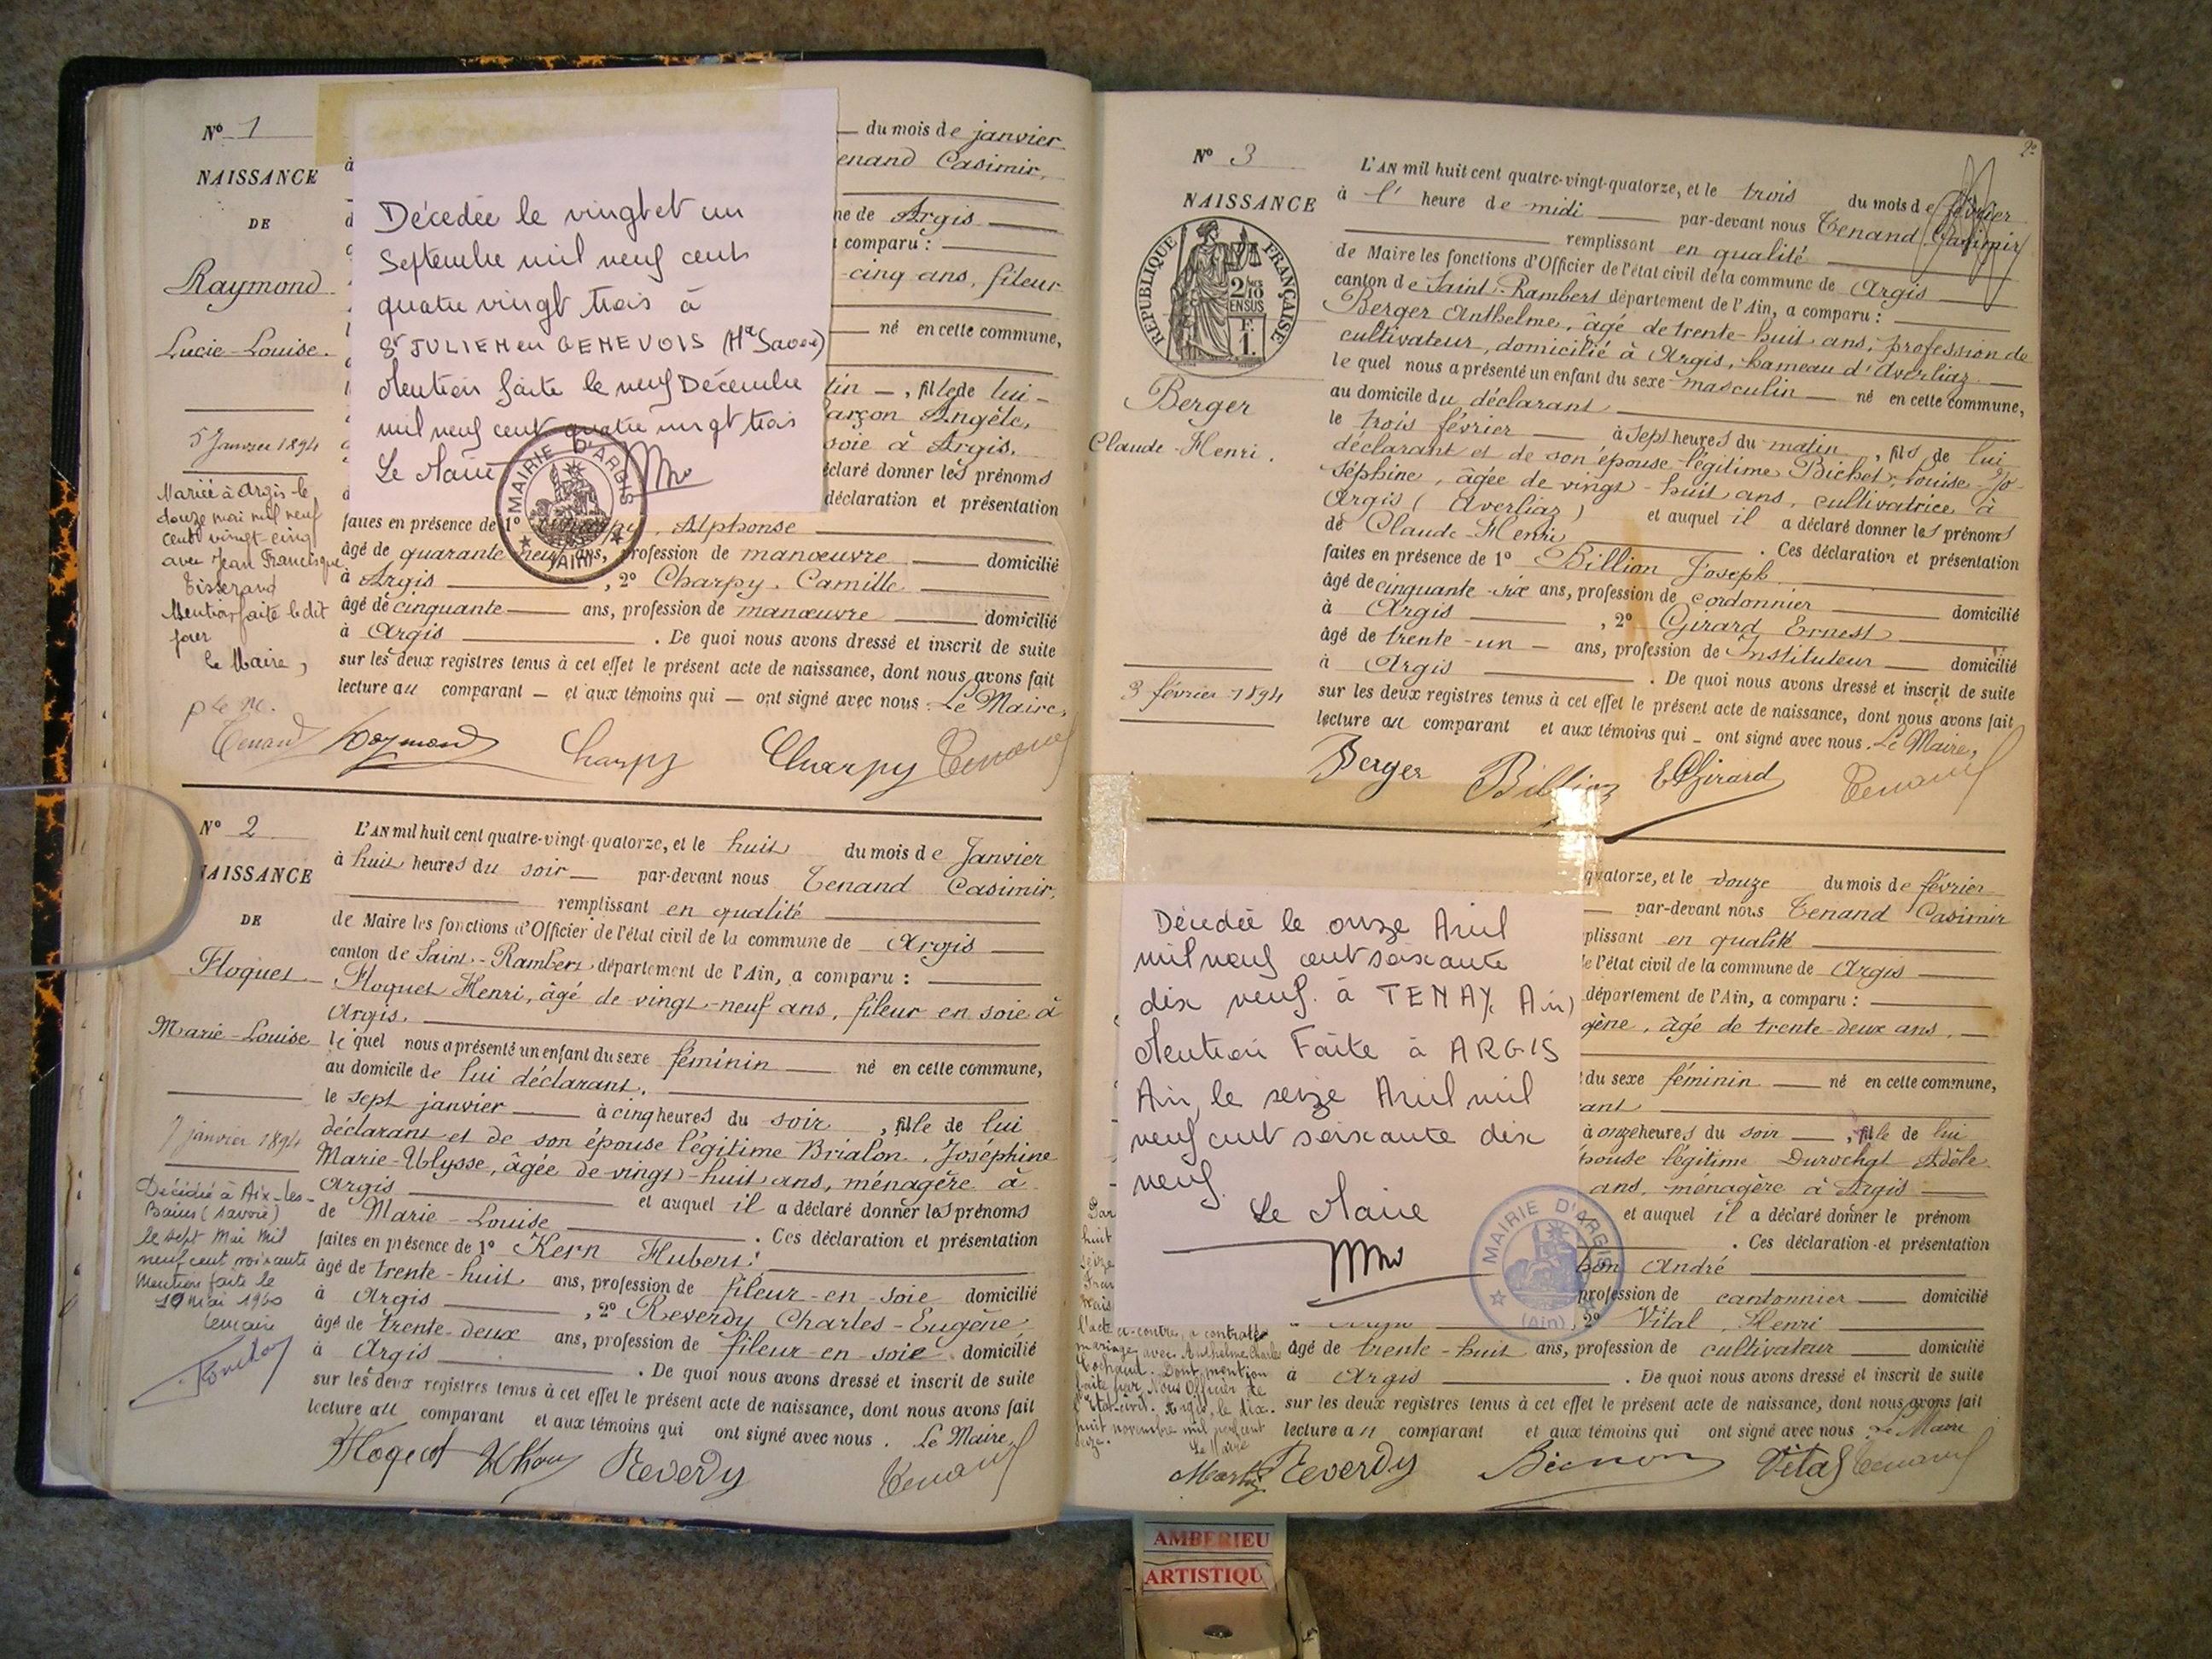 Nº 1
NAISSANCE
DE
Raymond
Lucie-Louise.
5 Janvier 1894
Mariée à Argis le
douze mai mil neuf
cent vingt-cinq
avec Jean Francisque
Tisserand
Mention faite le dit
jour
le Maire,
Tenand
Décédée le vingt et un
Septembre mil neuf cent
quatre vingt trois à
St JULIEN en GENEVOIS (Hte Savoie)
Mention faite le neuf Décembre
mil neuf cent quatre vingt trois
Le Maire
MAIRIE D'ARGIS
(AIN)
du mois de janvier
enand Casimir,
ne de Argis
comparu :
-cinq ans, fileur
né en cette commune,
tin , fille de lui-
arçon Angèle,
soie à Argis.
éclaré donner les prénoms
déclaration et présentation
faites en présence de 1º Alphonse
âgé de quarante neuf ans, profession de manœuvre domicilié
à Argis , 2º Charpy, Camille
âgé de cinquante ans, profession de manœuvre domicilié
à Argis . De quoi nous avons dressé et inscrit de suite
sur les deux registres tenus à cet effet le présent acte de naissance, dont nous avons fait
lecture au comparant et aux témoins qui ont signé avec nous. Le Maire,
Raymond Charpy Charpy Tenand
Nº 2
NAISSANCE
DE
Floquet
Marie-Louise
7 janvier 1894
Décédée à Aix-les-
Bains (Savoie)
le sept Mai mil
neuf cent soixante
Mention faite le
10 mai 1960
Le maire
L'AN mil huit cent quatre-vingt-quatorze, et le huit du mois de Janvier
à huit heures du soir par-devant nous Tenand Casimir,
remplissant en qualité
de Maire les fonctions d'Officier de l'état civil de la commune de Argis
canton de Saint-Rambert département de l'Ain, a comparu :
Floquet Henri, âgé de vingt-neuf ans, fileur en soie à
Argis.
le quel nous a présenté un enfant du sexe féminin né en cette commune,
au domicile de lui déclarant,
le sept janvier à cinq heures du soir , fille de lui
déclarant et de son épouse légitime Brialon, Joséphine
Marie-Ulysse, âgée de vingt-huit ans, ménagère à
Argis et auquel il a déclaré donner les prénoms
de Marie-Louise . Ces déclaration et présentation
faites en présence de 1º Kern Hubert
âgé de trente-huit ans, profession de fileur-en-soie domicilié
à Argis , 2º Reverdy Charles-Eugène
âgé de trente-deux ans, profession de fileur-en-soie domicilié
à Argis . De quoi nous avons dressé et inscrit de suite
sur les deux registres tenus à cet effet le présent acte de naissance, dont nous avons fait
lecture au comparant et aux témoins qui ont signé avec nous. Le Maire,
Reverdy Tenand
2e
Nº 3
NAISSANCE
RÉPUBLIQUE FRANÇAISE
2/10
EN SUS
F.
1.
Berger
Claude-Henri.
3 février 1894
L'AN mil huit cent quatre-vingt-quatorze, et le trois du mois de février
à l' heure de midi par-devant nous Tenand Casimir
remplissant en qualité
de Maire les fonctions d'Officier de l'état civil de la commune de Argis
canton de Saint-Rambert département de l'Ain, a comparu :
Berger Anthelme, âgé de trente-huit ans, profession de
cultivateur, domicilié à Argis, hameau d'Averliaz.
le quel nous a présenté un enfant du sexe masculin né en cette commune,
au domicile du déclarant
le trois février à sept heures du matin , fils de lui
déclarant et de son épouse légitime Bichet, Louise-Jo-
séphine, âgée de vingt-huit ans, cultivatrice à
Argis (Averliaz) et auquel il a déclaré donner les prénoms
de Claude-Henri . Ces déclaration et présentation
faites en présence de 1º Billion Joseph
âgé de cinquante-six ans, profession de cordonnier domicilié
à Argis , 2º Girard Ernest
âgé de trente-un ans, profession de Instituteur domicilié
à Argis . De quoi nous avons dressé et inscrit de suite
sur les deux registres tenus à cet effet le présent acte de naissance, dont nous avons fait
lecture au comparant et aux témoins qui ont signé avec nous. Le Maire,
Berger Billion E Girard Tenand
Décédée le onze Avril
mil neuf cent soixante
dix neuf. à TENAY Ain)
Mention Faite à ARGIS
Ain, le seize Avril mil
neuf cent soixante dix
neuf.
Le Maire
MAIRIE D'ARGIS
(Ain)
quatorze, et le douze du mois de février
par-devant nous Tenand Casimir
plissant en qualité
e l'état civil de la commune de Argis
département de l'Ain, a comparu :
gène, âgé de trente-deux ans,
du sexe féminin né en cette commune,
ant
à onze heures du soir , fille de lui
pouse légitime Adèle
ans, ménagère à Argis
et auquel il a déclaré donner le prénom
. Ces déclaration et présentation
André
profession de cantonnier domicilié
, 2º Vital, Henri
âgé de trente-huit ans, profession de cultivateur domicilié
à Argis . De quoi nous avons dressé et inscrit de suite
sur les deux registres tenus à cet effet le présent acte de naissance, dont nous avons fait
lecture au comparant et aux témoins qui ont signé avec nous Le Maire
Reverdy Vital Tenand
huit
seize
l'acte ci-contre, a contracté
mariage avec Anthelme Charles
Dont mention
faite par Nous Officier de
l'Etat-civil. Argis, le dix-
huit novembre mil neuf cent
seize.
Le Maire
AMBERIEU
ARTISTIQU